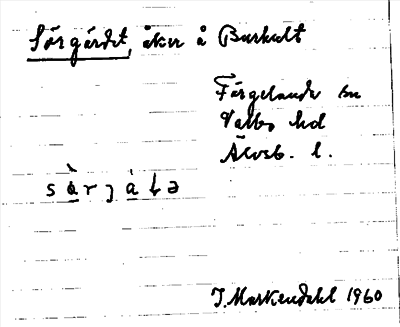 Sörgärdet, åker å Burhult
Färgelanda sn
Valbo hd
Älvsb. l.
J. Markendahl 1960